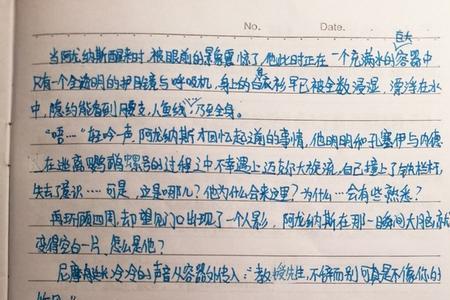 No. Date.
巨大
当阿龙纳斯醒来时，被眼前的景象震惊了，他此时正在一个充满水的容器中
只有一个全透明的护目镜与呼吸机，身上的白衬衫早已被全数浸湿，漂浮在水
中，隐约能看到腰支，人鱼线，乃至全身。
“唔……”轻吟一声，阿龙纳斯才回忆起之前的事情，他明明和孔塞伊与内德
在逃离鹦鹉螺号的过程之中不幸遇上迈尔大旋流，自己撞上了铁栏杆，
失去了意识……可是，这是哪儿？他为什么会来这里？为什么…会有些熟悉？
再环顾四周，却望见门口出现了一个人影，阿龙纳斯在那一瞬间大脑就
变得空白一片，怎么是他？
尼摩 冷冷的声音从容器外传入：“教授先生，不辞而别可真是不像你的